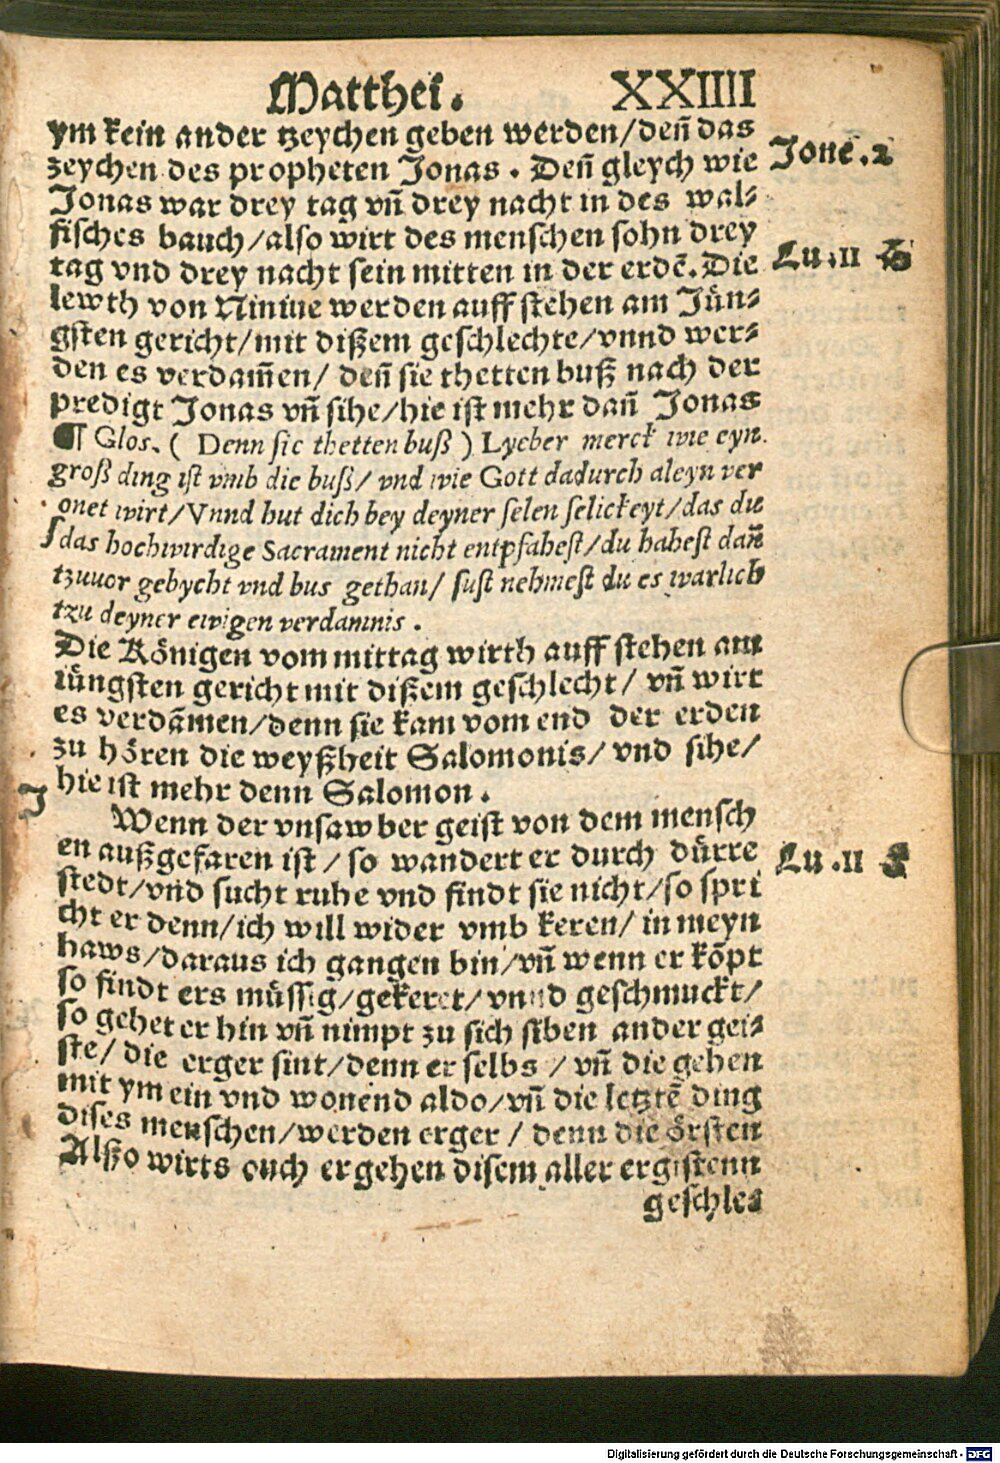 Matthei. XXIIII
ym kein ander tzeychen geben werden/deñ das
zeychen des propheten Jonas. Deñ gleych wie
Jone.2
Jonas war drey tag vñ drey nacht in des wal⸗
fisches bauch/also wirt des menschen sohn drey
tag vnd drey nacht sein mitten in der erdẽ. Die
Lu.II
lewth von Niniue werden auff stehen am Jün⸗
gsten gericht/mit dißem geschlechte/vnnd wer⸗
den es verdam̃en/ deñ sie thetten buß nach der
predigt Jonas vñ sihe/hie ist mehr dañ Jonas
¶ Glos. ( Denn sie thetten buß ) Lyeber merck wie eyn
groß ding ist vmb die buß/ vnd wie Gott dadurch aleyn ver
onet wirt/Vnnd hut dich bey deyner selen selickeyt/das du
das hochwirdige Sacrament nicht entpfahest/du habest dañ
tzuuor gebycht vnd bus gethan/ sust nehmest du es warlich
tzu deyner ewigen verdamnis.
Die Königen vom mittag wirth auff stehen am
iüngsten gericht mit dißem geschlecht/ vñ wirt
es verdãmen/denn sie kam vom end der erden
zu hören die weyßheit Salomonis/ vnd sihe/
hie ist mehr denn Salomon.
J
Wenn der vnsawber geist von dem mensch
en außgefaren ist/so wandert er durch dürre
Lu.II
stedt/vnd sucht ruhe vnd findt sie nicht/so spri
cht er denn/ich will wider vmb keren/ in meyn
haws/daraus ich gangen bin/vñ wenn er kõpt
so findt ers müssig/gekeret/vnnd geschmuckt/
so gehet er hin vñ nimpt zu sich siben ander gei⸗
ste/ die erger sint/denn er selbs/ vñ die gehen
mit ym ein vnd wonend aldo/vñ die letztẽ ding
dises menschen/werden erger/ denn die örsten
Alßo wirts ouch ergehen disem aller ergistenn
geschlea
Digitalisierung gefördert durch die Deutsche Forschungsgemeinschaft - DFG